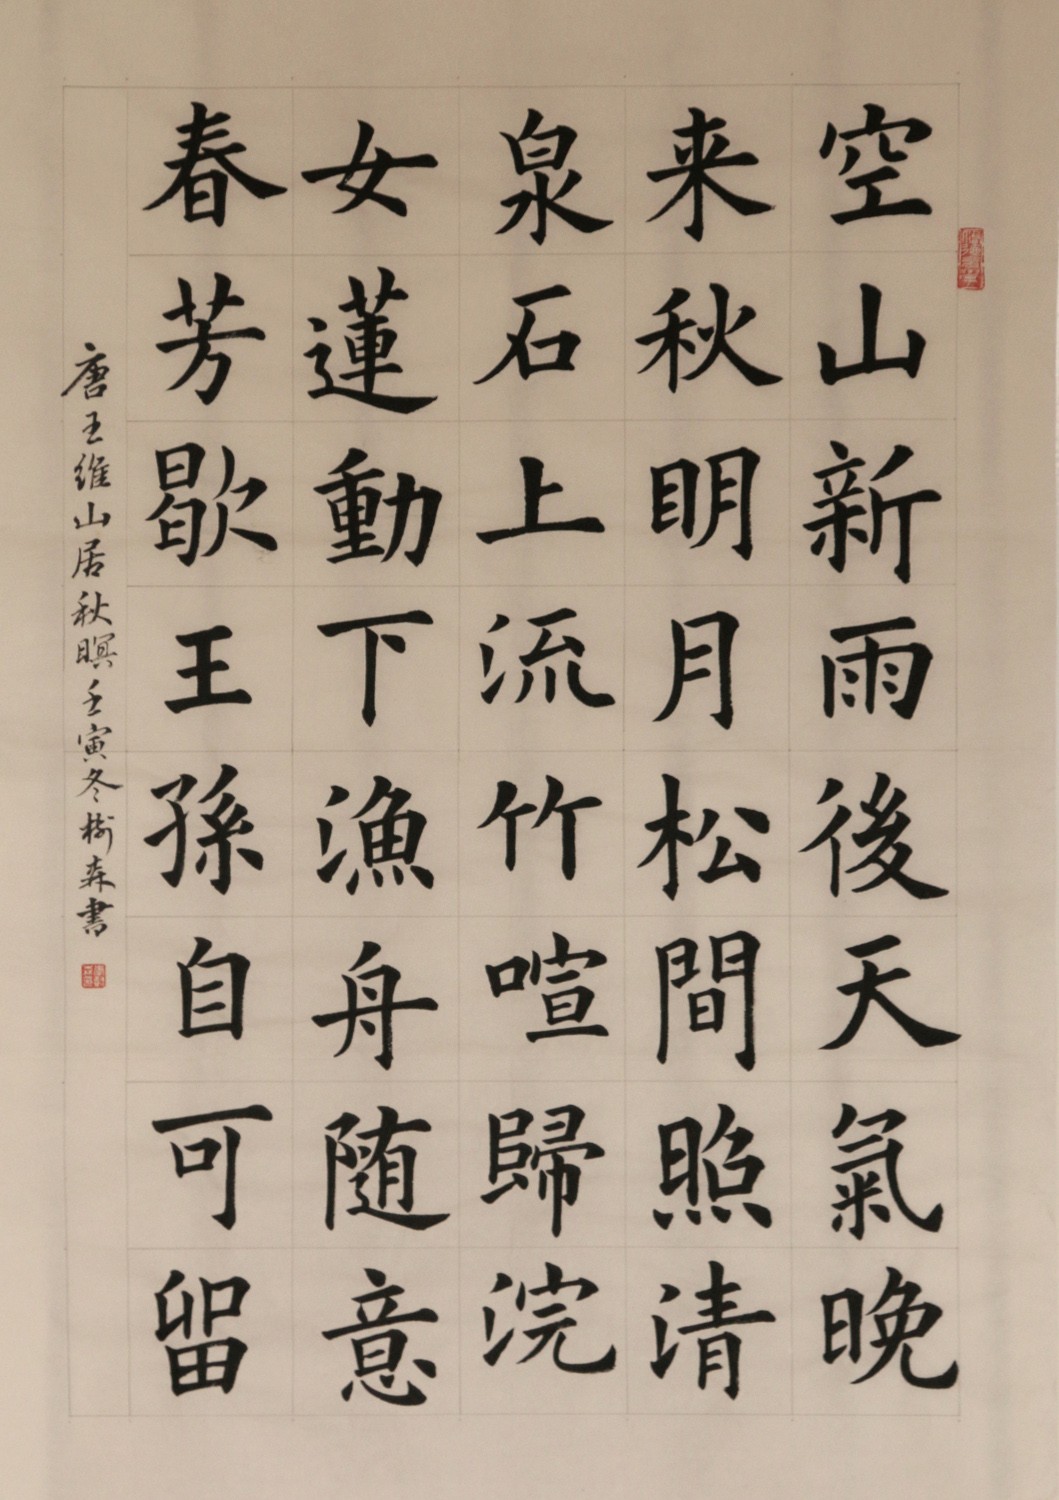 空山新雨後天氣晚
来秋明月松間照清
泉石上流竹喧歸浣
女蓮動下漁舟随意
春芳歇王孫自可留
唐王維山居秋暝壬寅冬樹森書